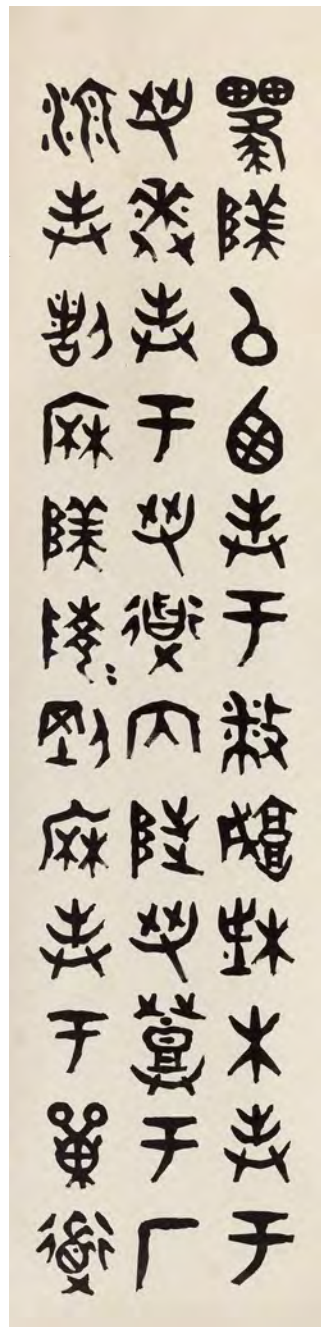 𨺅以西封于播城楮木封于
芻逨封于芻道內陟芻登于厂
湶封割柝𨺅陵剛柝封于單道